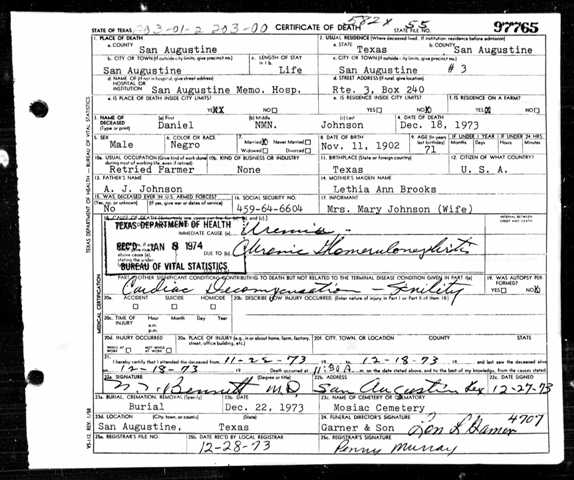 STATE OF TEXAS 203-01-2 203-00 CERTIFICATE OF DEATH 582X STATE FILE NO. 55 97765
1. PLACE OF DEATH 2. USUAL RESIDENCE (Where deceased lived. If institution: residence before admission)
a. COUNTY San Augustine a. STATE Texas b. COUNTY San Augustine
b. CITY OR TOWN (If outside city limits, give precinct no.) c. LENGTH OF STAY in 1 b. c. CITY OR TOWN (If outside city limits, give precinct no.)
San Augustine Life San Augustine # 3
d. NAME OF (If not in hospital, give street address) HOSPITAL OR INSTITUTION San Augustine Memo. Hosp. d. STREET ADDRESS (If rural, give location) Rte. 3, Box 240
e. IS PLACE OF DEATH INSIDE CITY LIMITS? e. IS RESIDENCE INSIDE CITY LIMITS? f. IS RESIDENCE ON A FARM?
YES XX NO YES NO X YES X NO
3. NAME OF DECEASED (Type or print) (a) First Daniel (b) Middle NMN. (c) Last Johnson 4. DATE OF DEATH Dec. 18, 1973
5. SEX Male 6. COLOR OR RACE Negro 7. Married X Never Married Widowed Divorced 8. DATE OF BIRTH Nov. 11, 1902 9. AGE (In years last birthday) 71 IF UNDER 1 YEAR Months Days IF UNDER 24 HRS. Hours Min.
10a. USUAL OCCUPATION (Give kind of work done during most of working life, even if retired) 10b. KIND OF BUSINESS OR INDUSTRY 11. BIRTHPLACE (State or foreign country) 12. CITIZEN OF WHAT COUNTRY?
Retried Farmer None Texas U. S. A.
13. FATHER'S NAME 14. MOTHER'S MAIDEN NAME
A. J. Johnson Lethia Ann Brooks
15. WAS DECEASED EVER IN U.S. ARMED FORCES? 16. SOCIAL SECURITY NO. 17. INFORMANT
No 459-64-6604 Mrs. Mary Johnson (Wife)
TEXAS DEPARTMENT OF HEALTH
IMMEDIATE CAUSE (a) Uremia
INTERVAL BETWEEN ONSET AND DEATH
REC'D JAN 8 1974 DUE TO (b) Chronic Glomerulonephritis
BUREAU OF VITAL STATISTICS
PART II. OTHER SIGNIFICANT CONDITIONS CONTRIBUTING TO DEATH BUT NOT RELATED TO THE TERMINAL DISEASE CONDITION GIVEN IN PART I(a) 19. WAS AUTOPSY PERFORMED?
Cardiac Decompensation - Senility YES NO X
20a. ACCIDENT SUICIDE HOMICIDE 20b. DESCRIBE HOW INJURY OCCURRED. (Enter nature of injury in Part I or Part II of item 18)
20c. TIME OF INJURY Hour a.m. p.m. Month Day Year
20d. INJURY OCCURRED WHILE AT WORK NOT WHILE AT WORK 20e. PLACE OF INJURY (e.g., in or about home, farm, factory, street, office building, etc.) 20f. CITY, TOWN, OR LOCATION COUNTY STATE
21. I hereby certify that I attended the deceased from 11-25-73 to 12-18-73 and last saw the deceased alive
12-18-73 Death occurred at 11:30 A. m. on the date stated above, and to the best of my knowledge, from the causes stated.
22a. SIGNATURE (Degree or title) 22b. ADDRESS 22c. DATE SIGNED
Bennett M.D. San Augustine Tex 12-27-73
23a. BURIAL, CREMATION, REMOVAL (Specify) 23b. DATE 23c. NAME OF CEMETERY OR CREMATORY
Burial Dec. 22, 1973 Mosiac Cemetery
23d. LOCATION (City, town, or county) (State) 24. FUNERAL DIRECTOR'S SIGNATURE 4707
San Augustine, Texas Garner & Son
25a. REGISTRAR'S FILE NO. 25b. DATE REC'D BY LOCAL REGISTRAR 25c. REGISTRAR'S SIGNATURE
12-28-73 Penny Murray
TEXAS DEPARTMENT OF HEALTH - BUREAU OF VITAL STATISTICS
MEDICAL CERTIFICATION